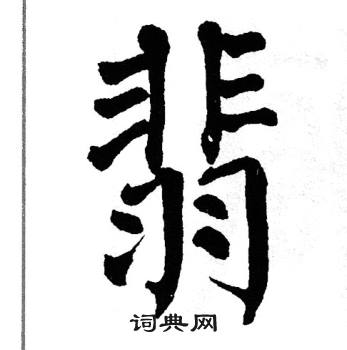 翡
词典网